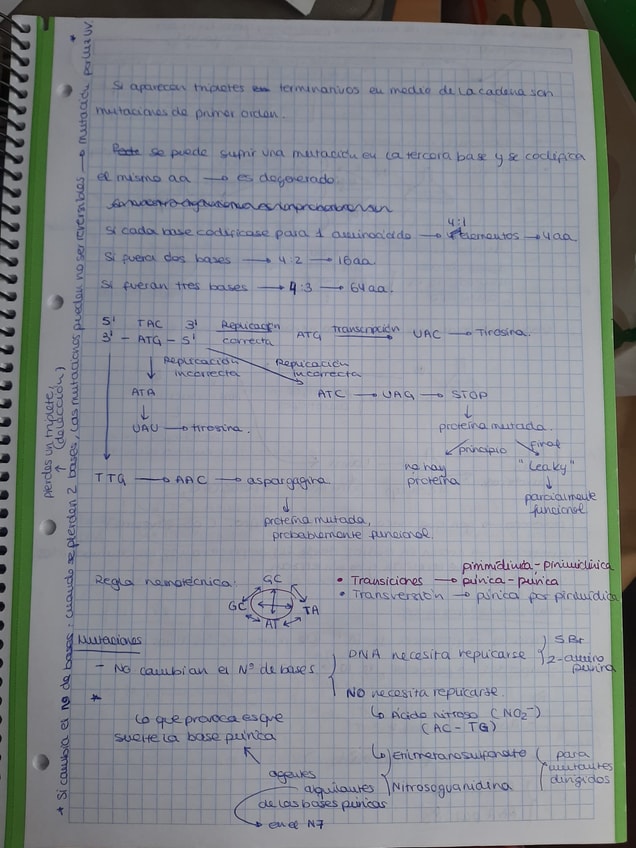 Si aparecen tripletes terminativos en medio de la cadena son
mutaciones de primer orden.
se puede sufrir una mutación en la tercera base y se codifica
el mismo aa → es degenerado.
Si cada base codificase para 1 aminoácido → 4:1 elementos → 4aa
Si fuera dos bases → 4:2 → 16aa.
Si fueran tres bases → 4:3 → 64aa.
5' TAC 3' Replicación correcta ATG transcripción UAC → Tirosina.
3' - ATG - 5'
Replicación incorrecta
Replicación incorrecta
ATA
ATC → UAG → STOP
UAU → tirosina.
proteína mutada.
principio
final
no hay proteína
"leaky"
parcialmente funcional
TTG → AAC → aspargagina
proteína mutada,
probablemente funcional.
Regla nemotécnica
GC
GC TA
AT
pirimidínica - pirimidínica
• Transiciones → púnica - púnica
• Transversión → púnica por pirimidídica
Mutaciones
- No cambian el Nº de bases
DNA necesita replicarse
5Br
2-amino purina
NO necesita replicarse.
↳ Ácido nitroso (NO₂⁻)
(AC - TG)
*
Lo que provoca es que
suelte la base púnica
agentes
alquilantes
de las bases púnicas
en el N7
↳ Etilmetanosulfonato
Nitrosoguanidina
para
mutantes
dirigidos
* Si cambia el nº de bases: cuando se pierden 2 bases, las mutaciones pueden no ser reversibles → mutación por luz UV. *
pierdes un triplete,
↑ (delección)